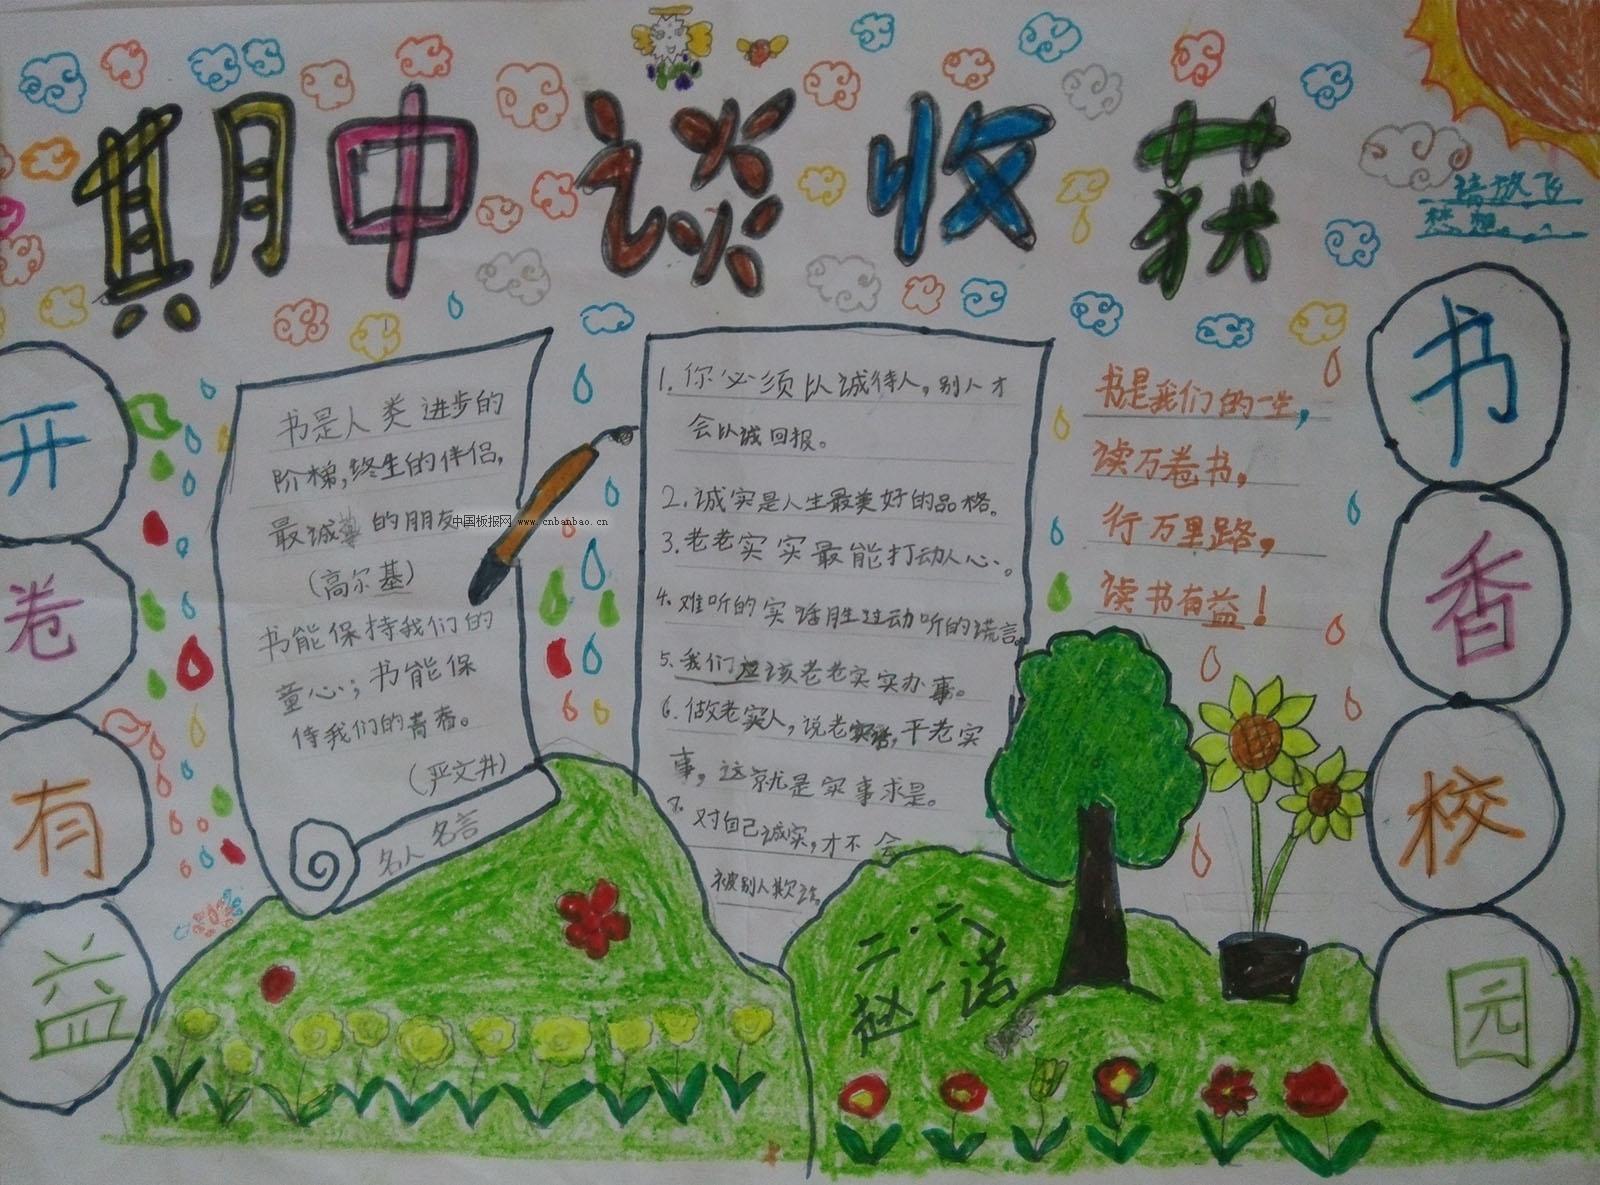 期中谈收获
请放飞
梦想。
开卷有益
书是人类进步的
阶梯,终生的伴侣,
最诚挚的朋友
(高尔基)
书能保持我们的
童心;书能保
侍我们的青春。
(严文井)
名人名言
中国板报网 www.cnbanbao.cn
1.你必须以诚待人,别人才
会以诚回报。
2.诚实是人生最美好的品格。
3.老老实实最能打动人心。
4.难听的实话胜过动听的谎言
5.我们应该老老实实办事。
6.做老实人,说老实话,干老实
事,这就是实事求是。
7.对自己诚实,才不会
被别人欺诈
书是我们的一生,
读万卷书,
行万里路,
读书有益!
书香校园
二·六
赵一诺